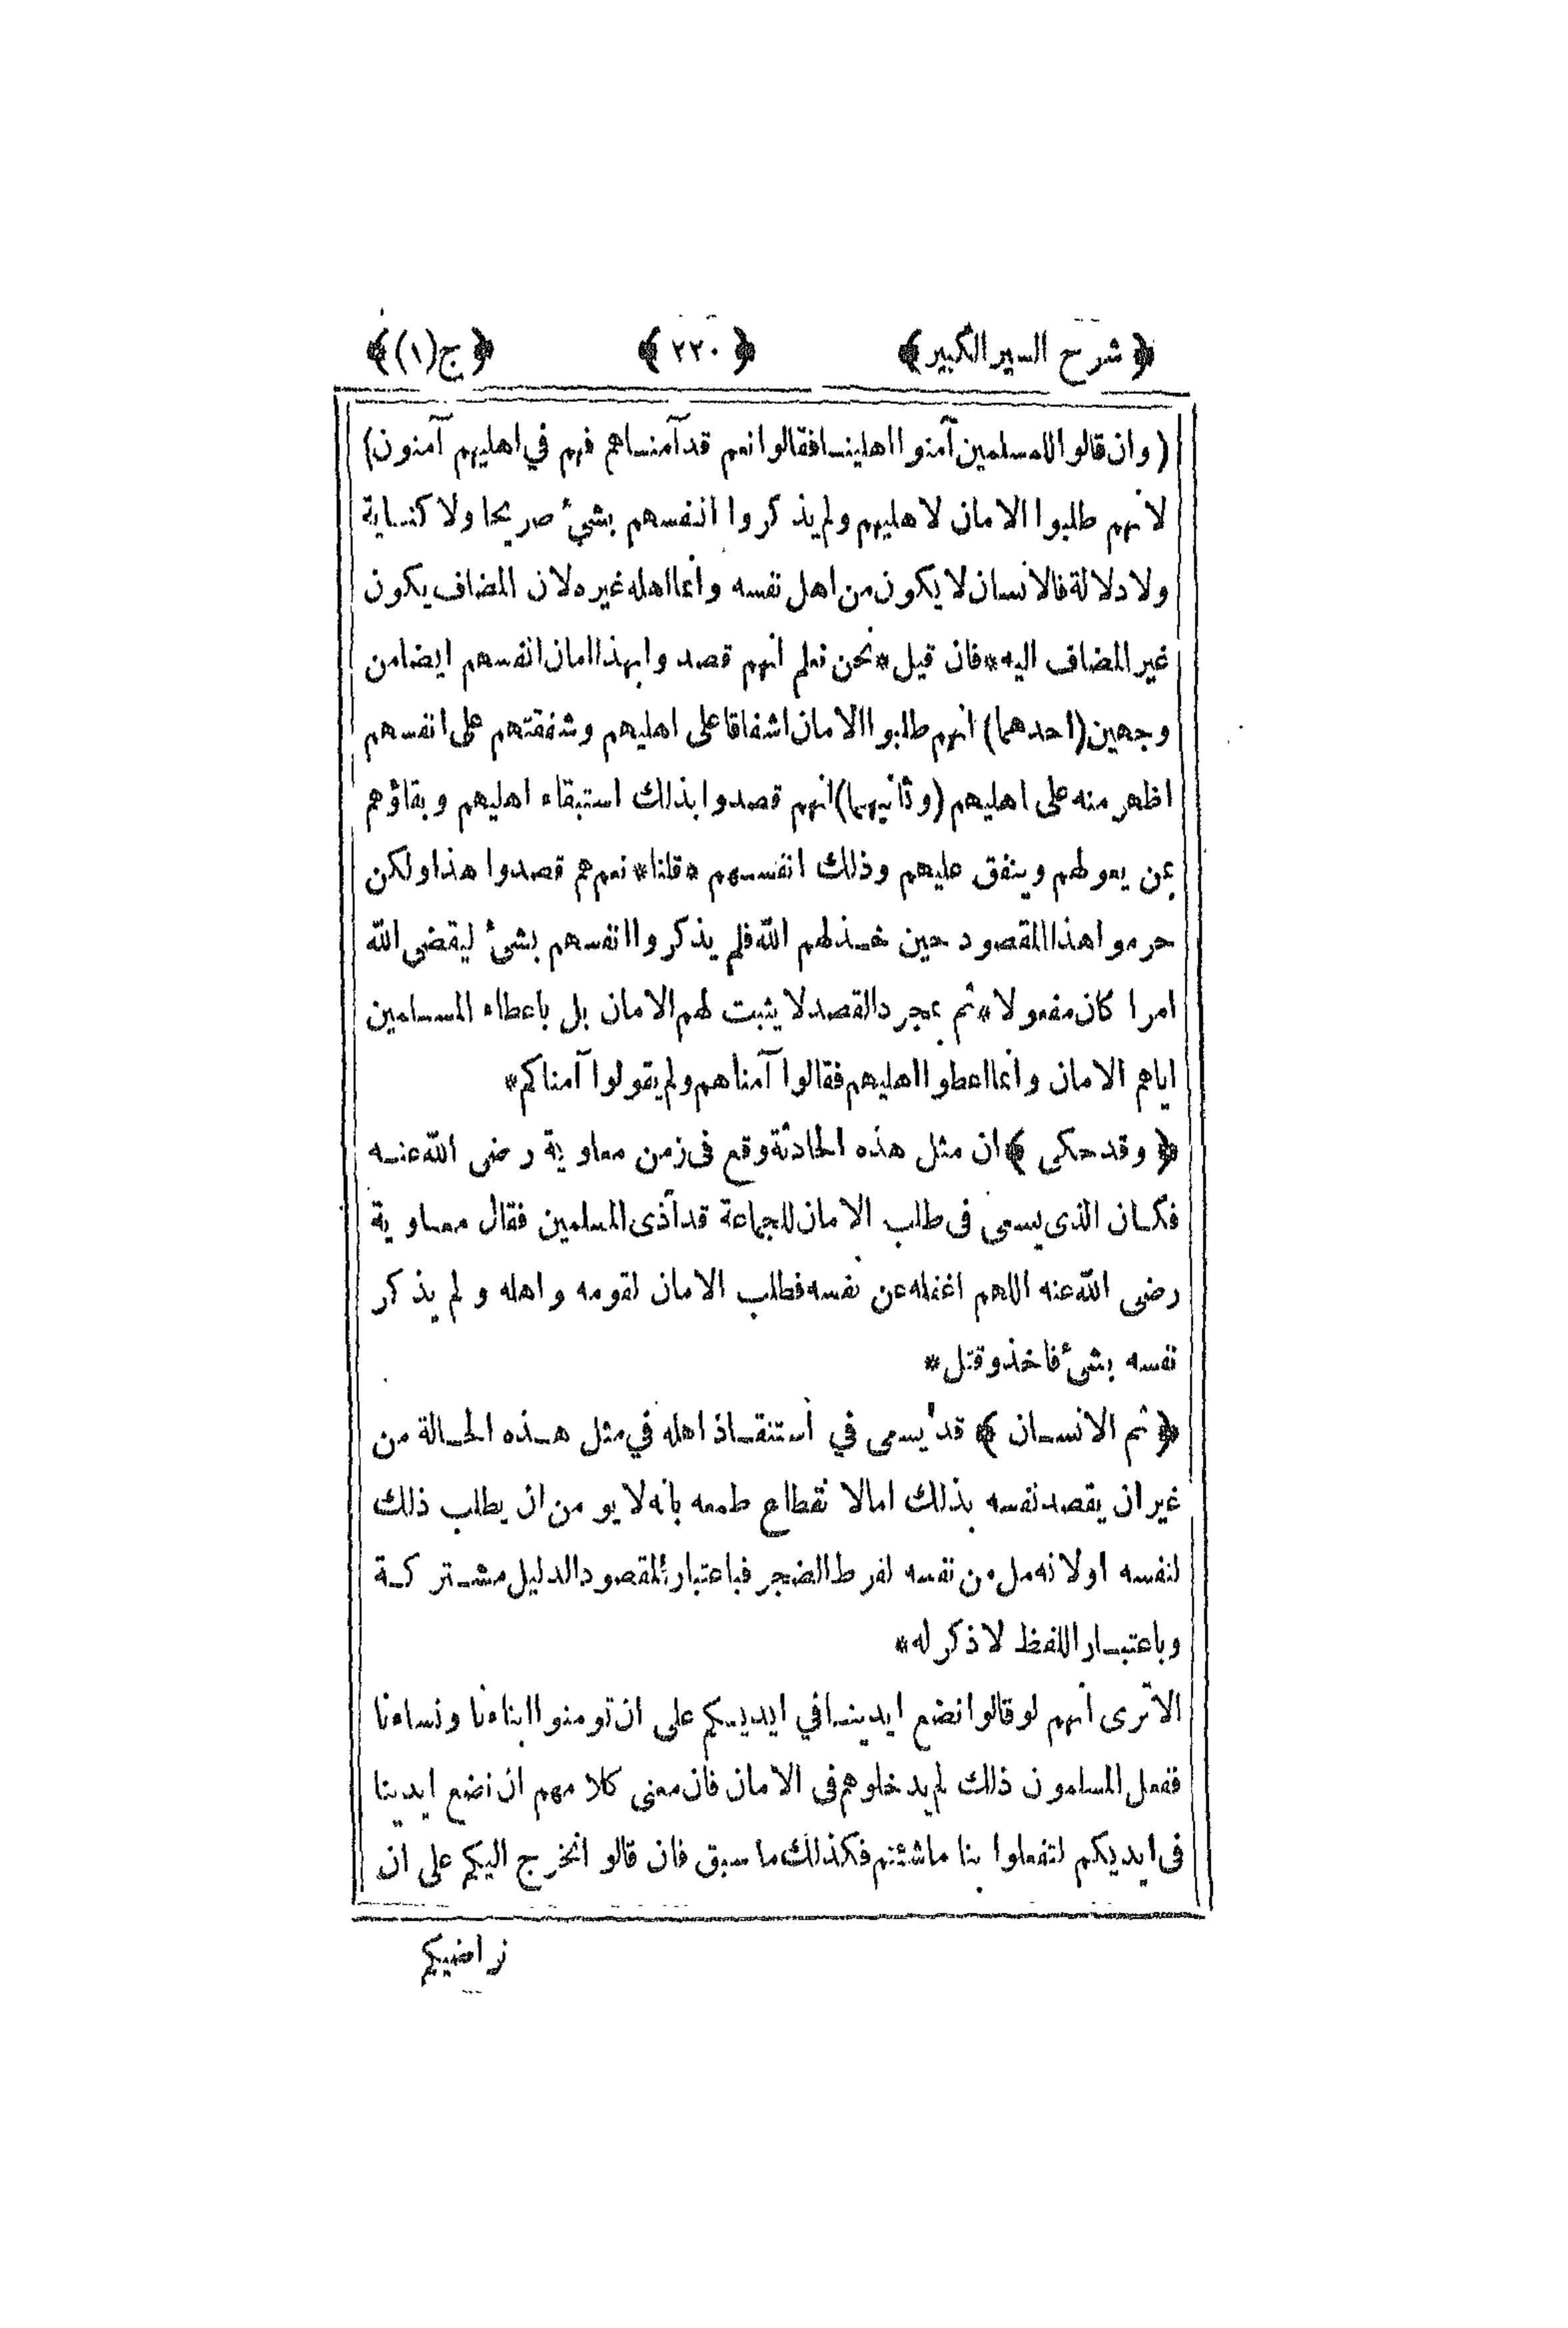 ﴿ شرح السير الكبير ﴾ ﴿ ٢٢٠ ﴾ ﴿ ج (١) ﴾
( وان قالوا للمسلمين آمنوا اهلينا فقالوا نعم قد آمناهم فهم في اهليهم آمنون )
لانهم طلبوا الامان لاهليهم ولم يذكروا انفسهم بشيء صريحا ولا كناية
ولا دلالة فالانسان لا يكون من اهل نفسه وانما اهله غيره لان المضاف يكون
غير المضاف اليه * فان قيل * نحن نعلم انهم قصدوا بهذا امان انفسهم ايضا من
وجهين ( احدهما ) انهم طلبوا الامان اشفاقا على اهليهم وشفقتهم على انفسهم
اظهر منه على اهليهم ( وثانيهما ) انهم قصدوا بذلك استبقاء اهليهم وبقاؤهم
بمن يعولهم وينفق عليهم وذلك انفسهم * قلنا * نعم هم قصدوا هذا ولكن
حرموا هذا المقصود حين خذلهم الله فلم يذكروا انفسهم بشئ ليقضى الله
امرا كان مفعولا * ثم بمجرد القصد لا يثبت لهم الامان بل باعطاء المسلمين
اياهم الامان وانما اعطوا اهليهم فقالوا آمناهم ولم يقولوا آمناكم *
﴿ وقد حكى ﴾ ان مثل هذه الحادثة وقع فى زمن معاوية رضى الله عنه
فكان الذى يسعى فى طلب الامان للجماعة قد آذى المسلمين فقال معاوية
رضى الله عنه اللهم اغفله عن نفسه فطلب الامان لقومه واهله ولم يذكر
نفسه بشئ فاخذ وقتل *
﴿ ثم الانسان ﴾ قد يسعى في استنقاذ اهله في مثل هذه الحالة من
غير ان يقصد نفسه بذلك اما لانقطاع طمعه بانه لا يومن ان يطلب ذلك
لنفسه او لانه مل من نفسه لفرط الضجر فباعتبار المقصود الدليل مشتركة
وباعتبار اللفظ لا ذكر له *
الا ترى انهم لو قالوا نضع ايدينا في ايديكم على ان تومنوا ابناءنا ونساءنا
ففعل المسلمون ذلك لم يدخلوهم فى الامان فان معنى كلامهم ان نضع ايدينا
فى ايديكم لتفعلوا بنا ما شئتم فكذلك ما سبق فان قالوا نخرج اليكم على ان
نراضيكم